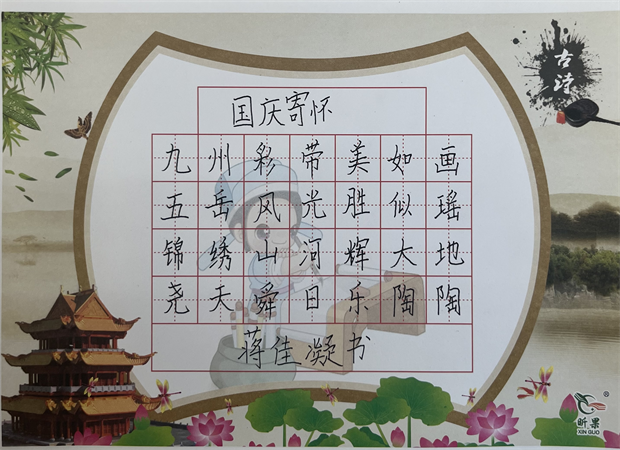 国庆寄怀
九州彩带美如画
五岳风光胜似瑶
锦绣山河辉大地
尧天舜日乐陶陶
蒋佳凝书
古诗
昕果
XIN GUO
®